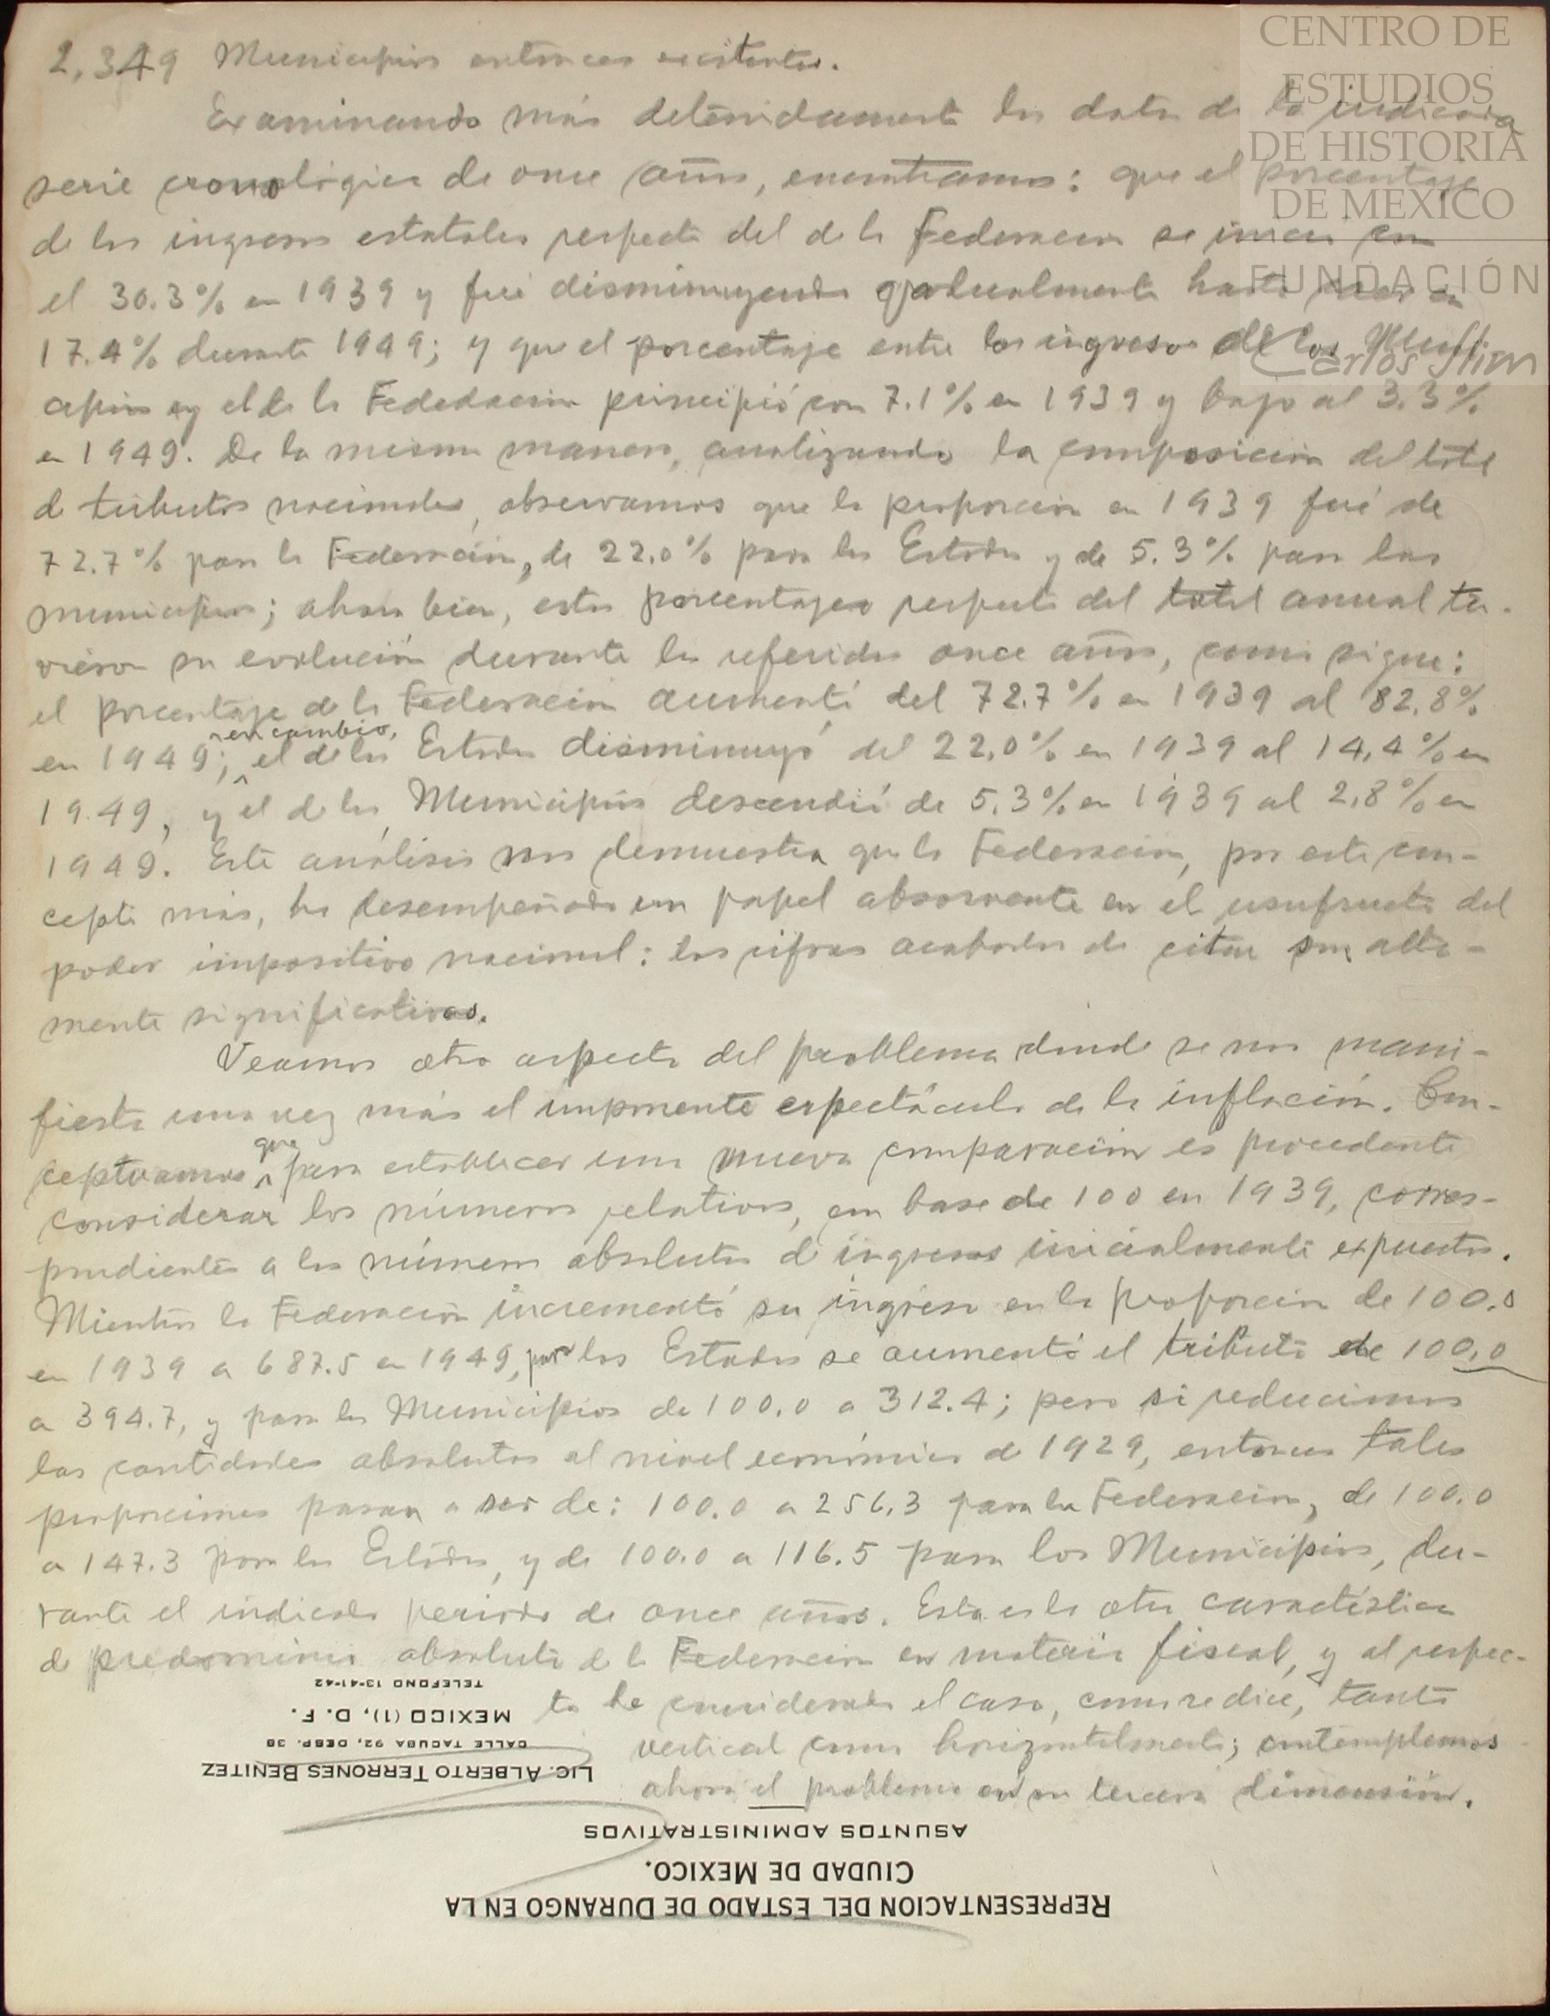 2,349 Municipios entonces existentes.
Examinando más detenidamente los datos de la indicada
serie cronológica de once años, encontramos: que el porcentaje
de los ingresos estatales respecto del de la Federación se inicia con
el 30.3% en 1939 y fué disminuyendo gradualmente hasta en
17.4% durante 1949; y que el porcentaje entre los ingresos de los Muni
cipios y el de la Fededación principió con 7.1% en 1939 y bajó al 3.3%
en 1949. De la misma manera, analizando la composición del total
de tributos nacionales, observamos que la proporción en 1939 fué de
72.7% para la Federación, de 22.0% para los Estados y de 5.3% para los
municipios; ahora bien, estos porcentajes respecto del total anual tu-
vieron su evolución durante los referidos once años, como sigue:
el porcentaje de la Federación aumentó del 72.7% en 1939 al 82.8%
en 1949; en cambio, el de los Estados disminuyó del 22.0% en 1939 al 14.4% en
1949, y el de los Municipios descendió de 5.3% en 1939 al 2.8% en
1949. Este análisis nos demuestra que la Federación, por este con-
cepto más, ha desempeñado un papel absorvente en el usufructo del
poder impositivo nacional: las cifras acabadas de citar son alta-
mente significativas.
Veamos otro aspecto del problema donde se nos mani-
fiesta una vez más el imponente espectáculo de la inflación. Con-
ceptuamos que para establecer una nueva comparación es procedente
considerar los números relativos, con base de 100 en 1939, corres-
pondientes a los números absolutos de ingresos inicialmente expuestos.
Mientras la Federación incrementó su ingreso en la proporción de 100.0
en 1939 a 687.5 en 1949, para los Estados se aumentó el tributo de 100.0
a 394.7, y para los Municipios de 100.0 a 312.4; pero si reducimos
las cantidades absolutas al nivel económico de 1929, entonces tales
proporciones pasan a ser de: 100.0 a 256.3 para la Federación, de 100.0
a 147.3 para los Estados, y de 100.0 a 116.5 para los Municipios, du-
rante el indicado período de once años. Esta es la otra caractéstica
de predominio absoluto de la Federación en materia fiscal, y al respec-
to he considerado el caso, como se dice, tanto
vertical como horizontalmente; contemplemos
ahora el problema en su tercera dimensión.
REPRESENTACION DEL ESTADO DE DURANGO EN LA
CIUDAD DE MEXICO.
ASUNTOS ADMINISTRATIVOS
LIC. ALBERTO TERRONES BENITEZ
CALLE TACUBA 92, DESP. 38
MEXICO (1), D. F.
TELEFONO 13-41-42
CENTRO DE
ESTUDIOS
DE HISTORIA
DE MEXICO
FUNDACIÓN
Carlos Slim